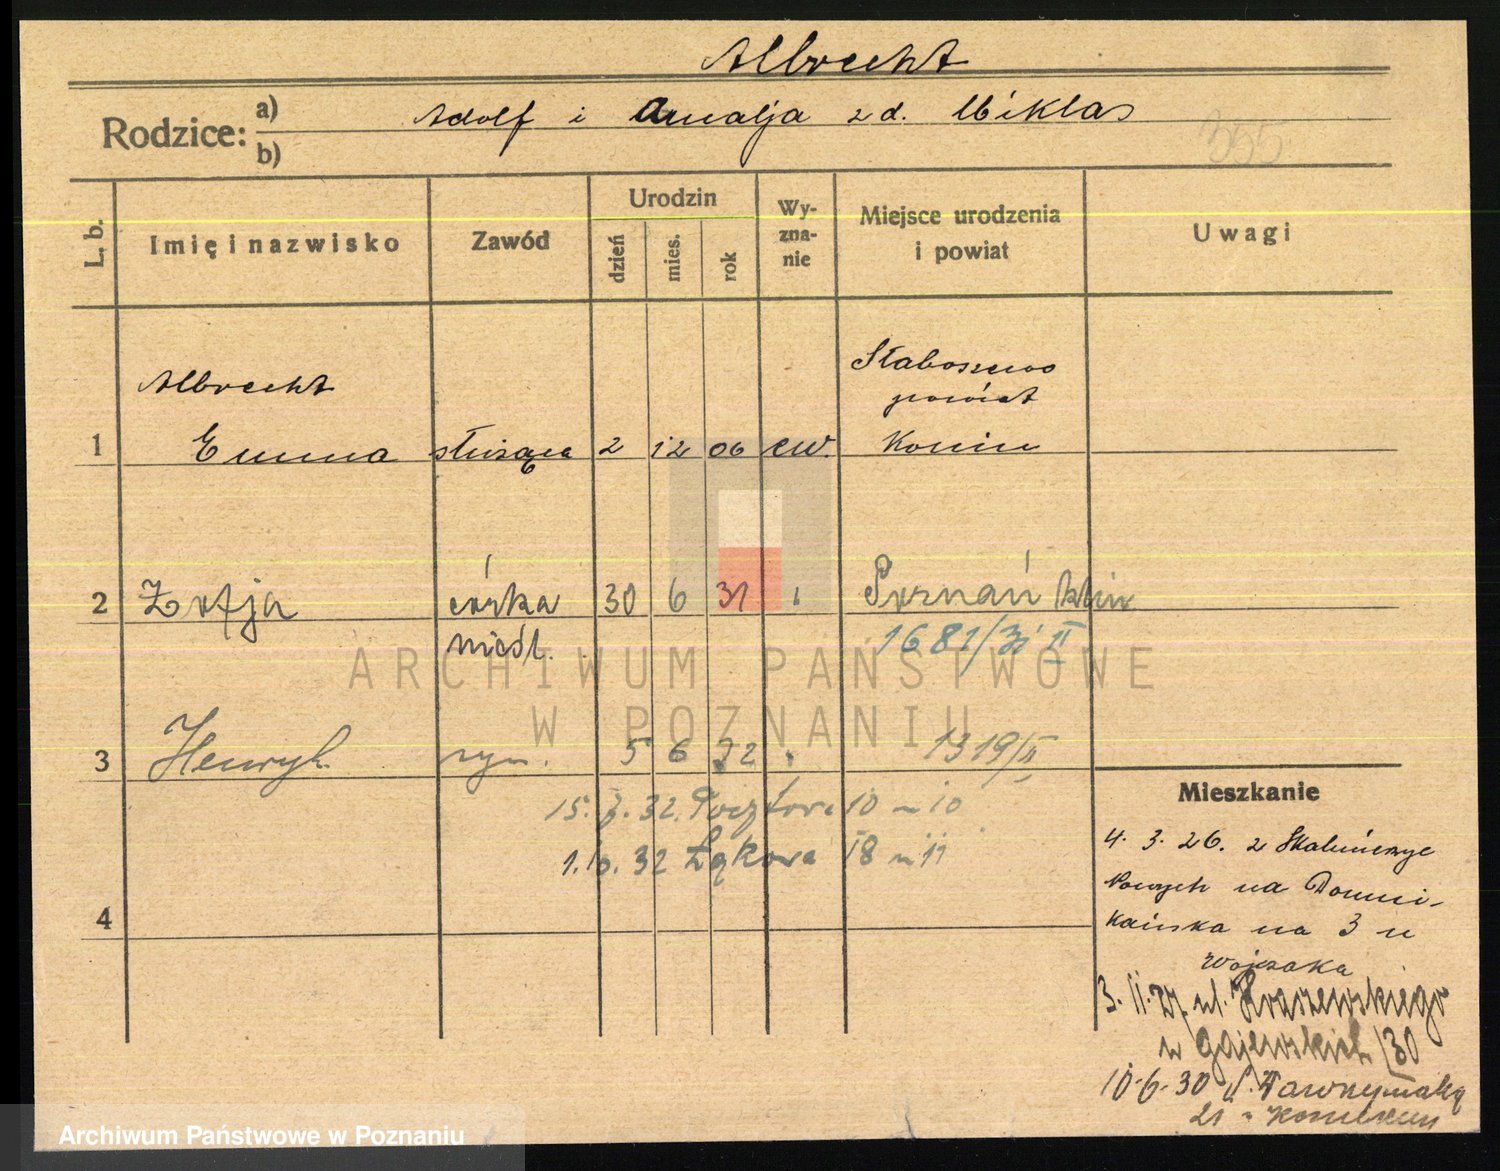 Albrecht
Rodzice: a) Adolf i Amalja z d. Miklas
b)
L. b. Imię i nazwisko Zawód Urodzin dzień mies. rok Wyznanie Miejsce urodzenia i powiat Uwagi
Albrecht Słaboszewo
powiat
1 Emma służąca 2 12 06 ew. Konin
2 Zofja córka 30 6 31 Poznań
nieśl. 1681/31 II
3 Henryk syn. 5 6 32 1319/II
15. 7. 32. Pocztowa 10 m 10
1.10. 32 Łąkowa 18 m 11
4
Mieszkanie
4. 3. 26. z
Nowych na Domini-
kańska na 3 u
Wojczaka
3. 11. 27. ul. Kraszewskiego
u Gajewskich /30
10.6.30
21
355
ARCHIWUM PAŃSTWOWE
W POZNANIU
Archiwum Państwowe w Poznaniu